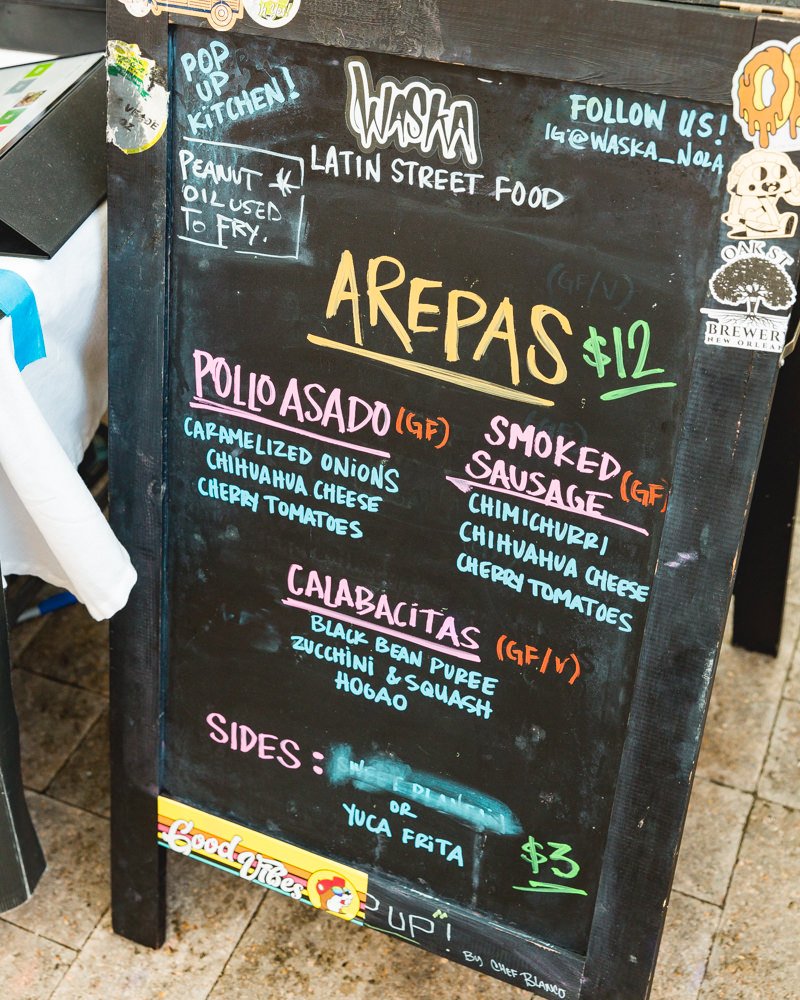 POP
UP
KITCHEN!
WASKA
LATIN STREET FOOD
FOLLOW US!
IG:@WASKA_NOLA
PEANUT *
OIL USED
TO FRY.
(GF/V)
AREPAS $12
POLLO ASADO (GF)
CARAMELIZED ONIONS
CHIHUAHUA CHEESE
CHERRY TOMATOES
SMOKED
SAUSAGE (GF)
CHIMICHURRI
CHIHUAHUA CHEESE
CHERRY TOMATOES
CALABACITAS (GF/V)
BLACK BEAN PUREE
ZUCCHINI & SQUASH
HOGAO
SIDES:
OR
YUCA FRITA
$3
Good Vibes
UP"!
BY CHEF BLANCO
OAK ST.
BREWER
NEW ORLEAN